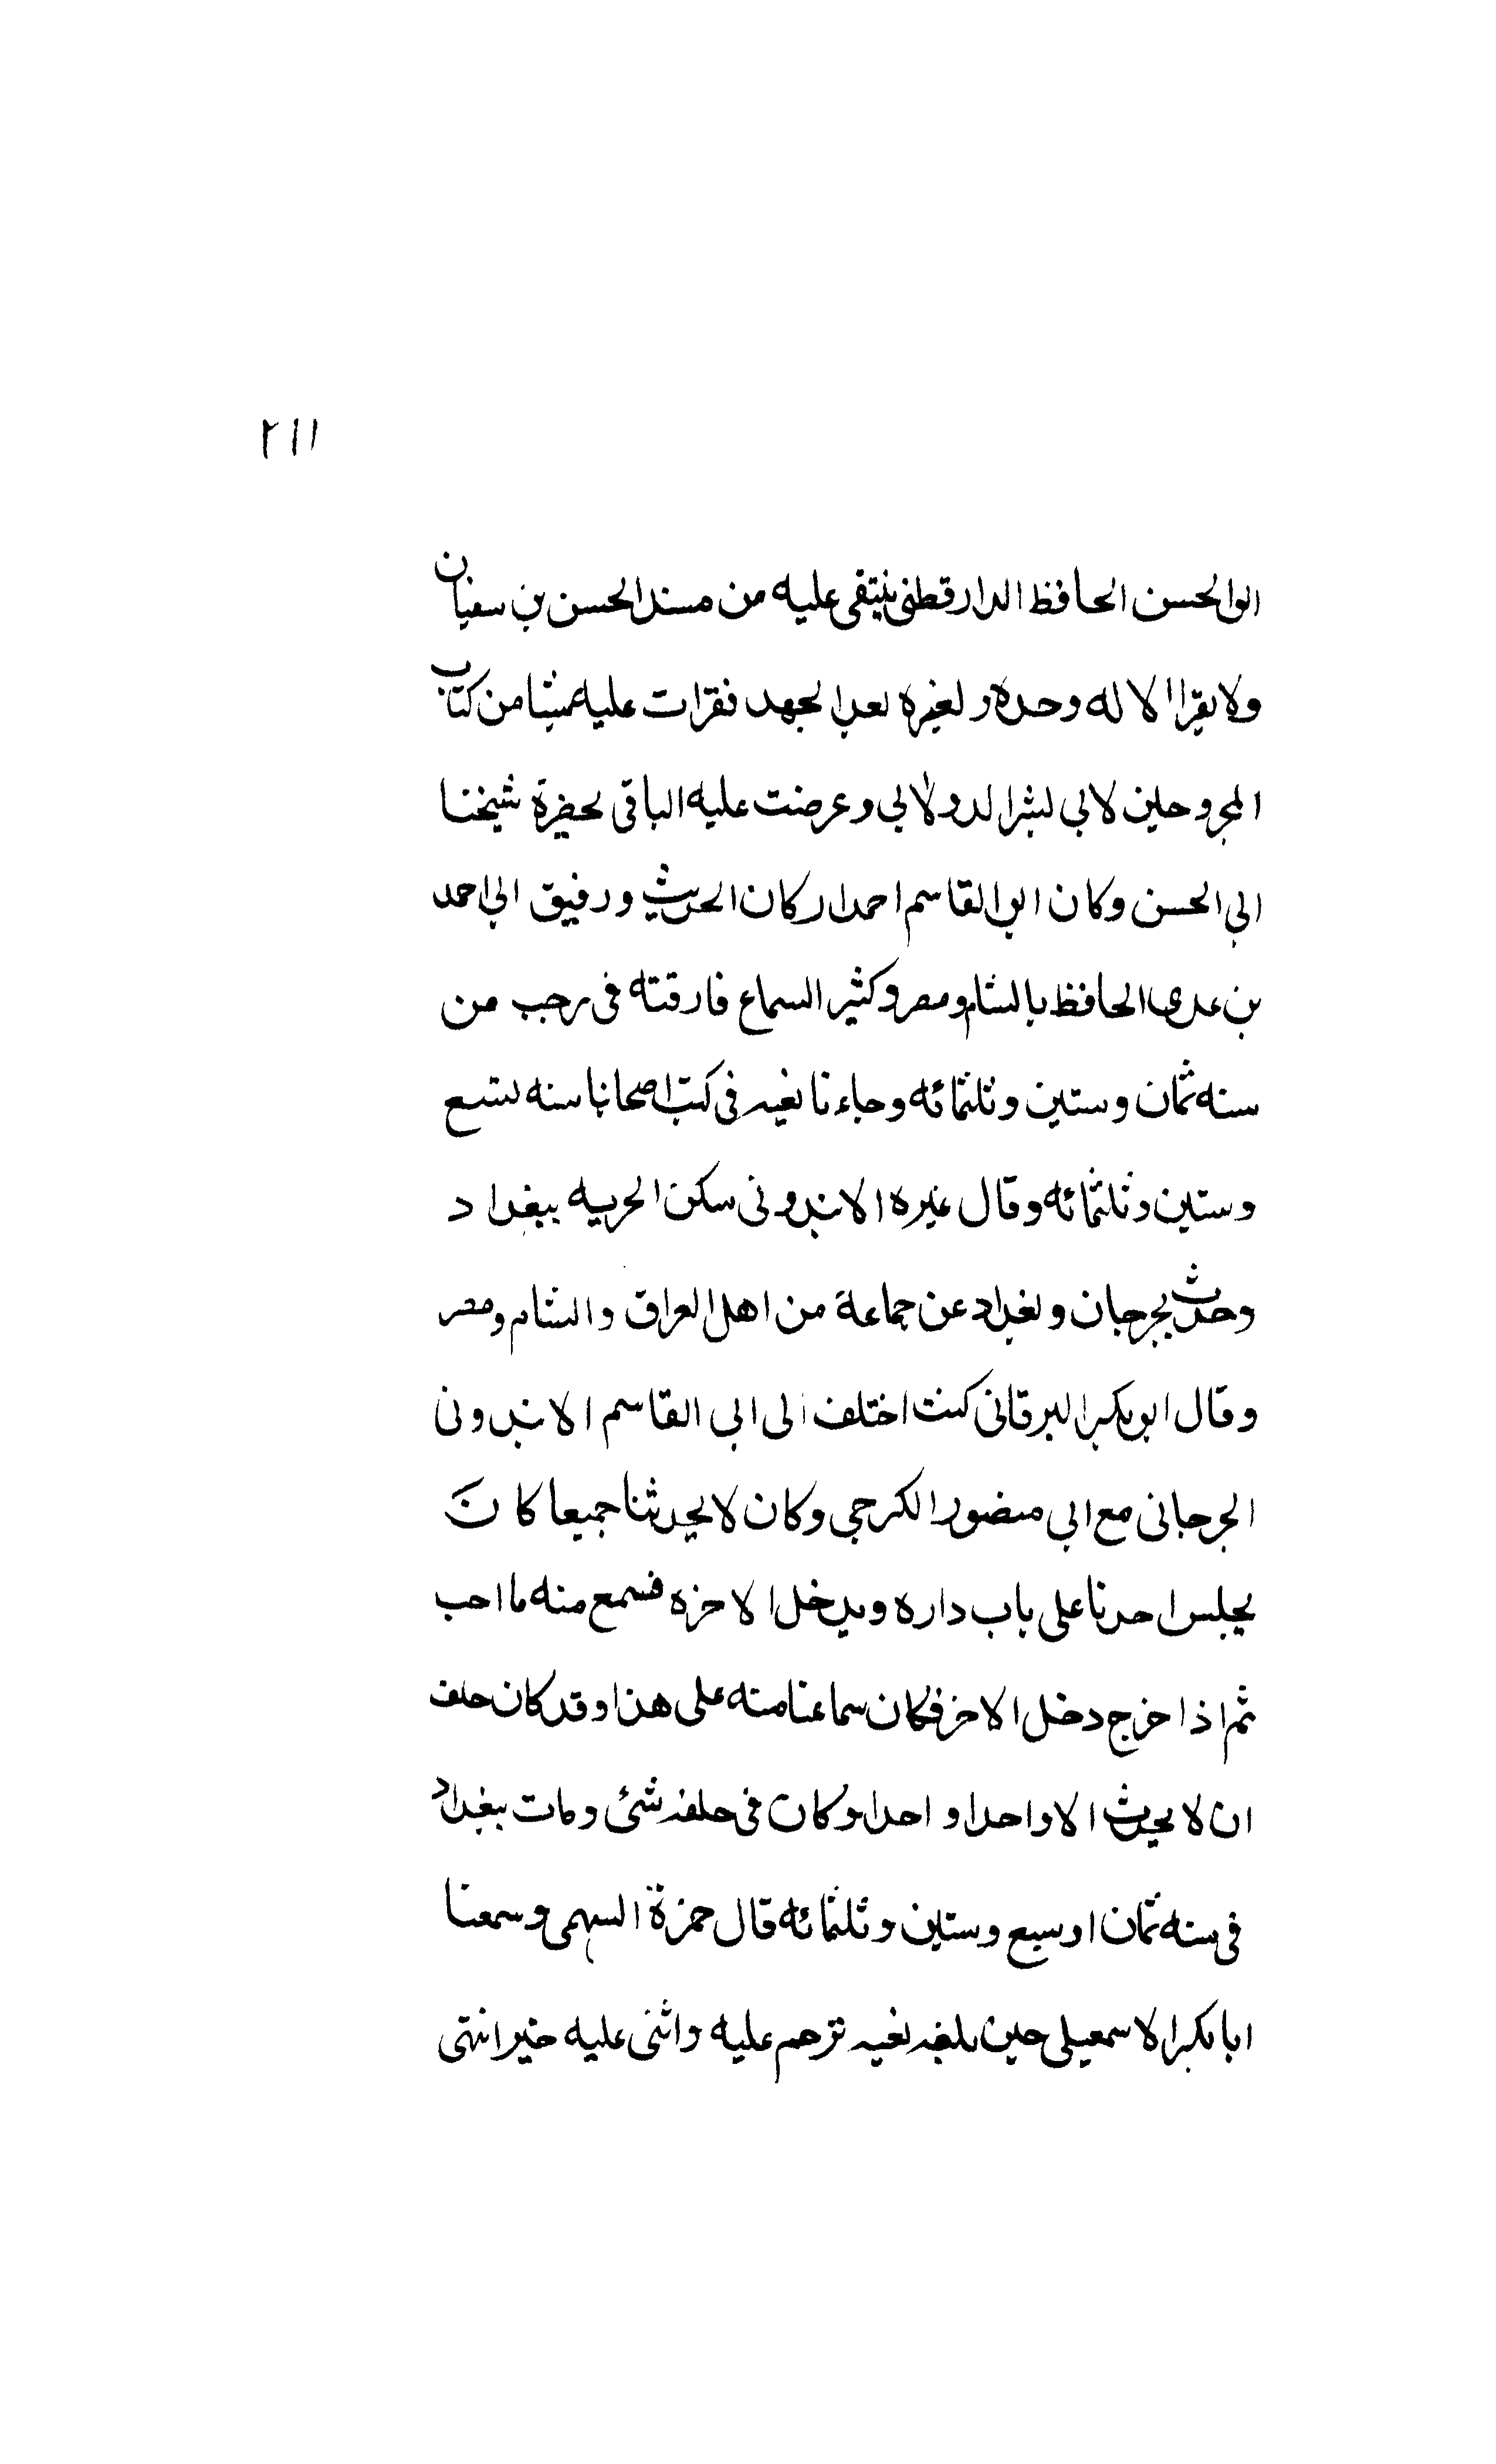 ٢١١
ابوالحسن الحافظ الدارقطنى ينتقى عليه من مسند الحسن بن سفيان
ولا يقرا الا له وحده ولغيره بعد الجهد فقرات عليه شيئا من كتاب
المجروحين لابي بشر الدولابي وعرضت عليه الباقى بحضرة شيخنا
ابي الحسن وكان ابو القاسم احد اركان الحديث ورفيق ابي احمد
بن عدى الحافظ بالشام ومصر وكثير السماع فارقته فى رجب من
سنه ثمان وستين وثلثمائه وجاءنا نعيه فى كتب اصحابنا سنه تسع
وستين وثلثمائه وقال غيره الابندونى سكن الحربيه ببغداد
وحدث بجرجان وبغداد عن جماعة من اهل العراق والشام ومصر
وقال ابو بكر البرقانى كنت اختلف الى ابى القاسم الابندونى
الجرجانى مع ابي منصور الكرجي وكان لا يحدثنا جميعا كان
يجلس احدنا على باب داره ويدخل الاخره فسمع منه ما احب
ثم اذا خرج دخل الاخر فكان سماعنا منه على هذا وقد كان حلف
ان لا يحدث الا واحدا واحدا وكان فى خلقه شئ ومات ببغداد
فى سنه ثمان اوسبع وستين وثلثمائه قال حمزة السهمى وسمعنا
ابا بكر الاسمعيلى حين بلغه نعيه ترحم عليه واثنى عليه خيرا نتهى